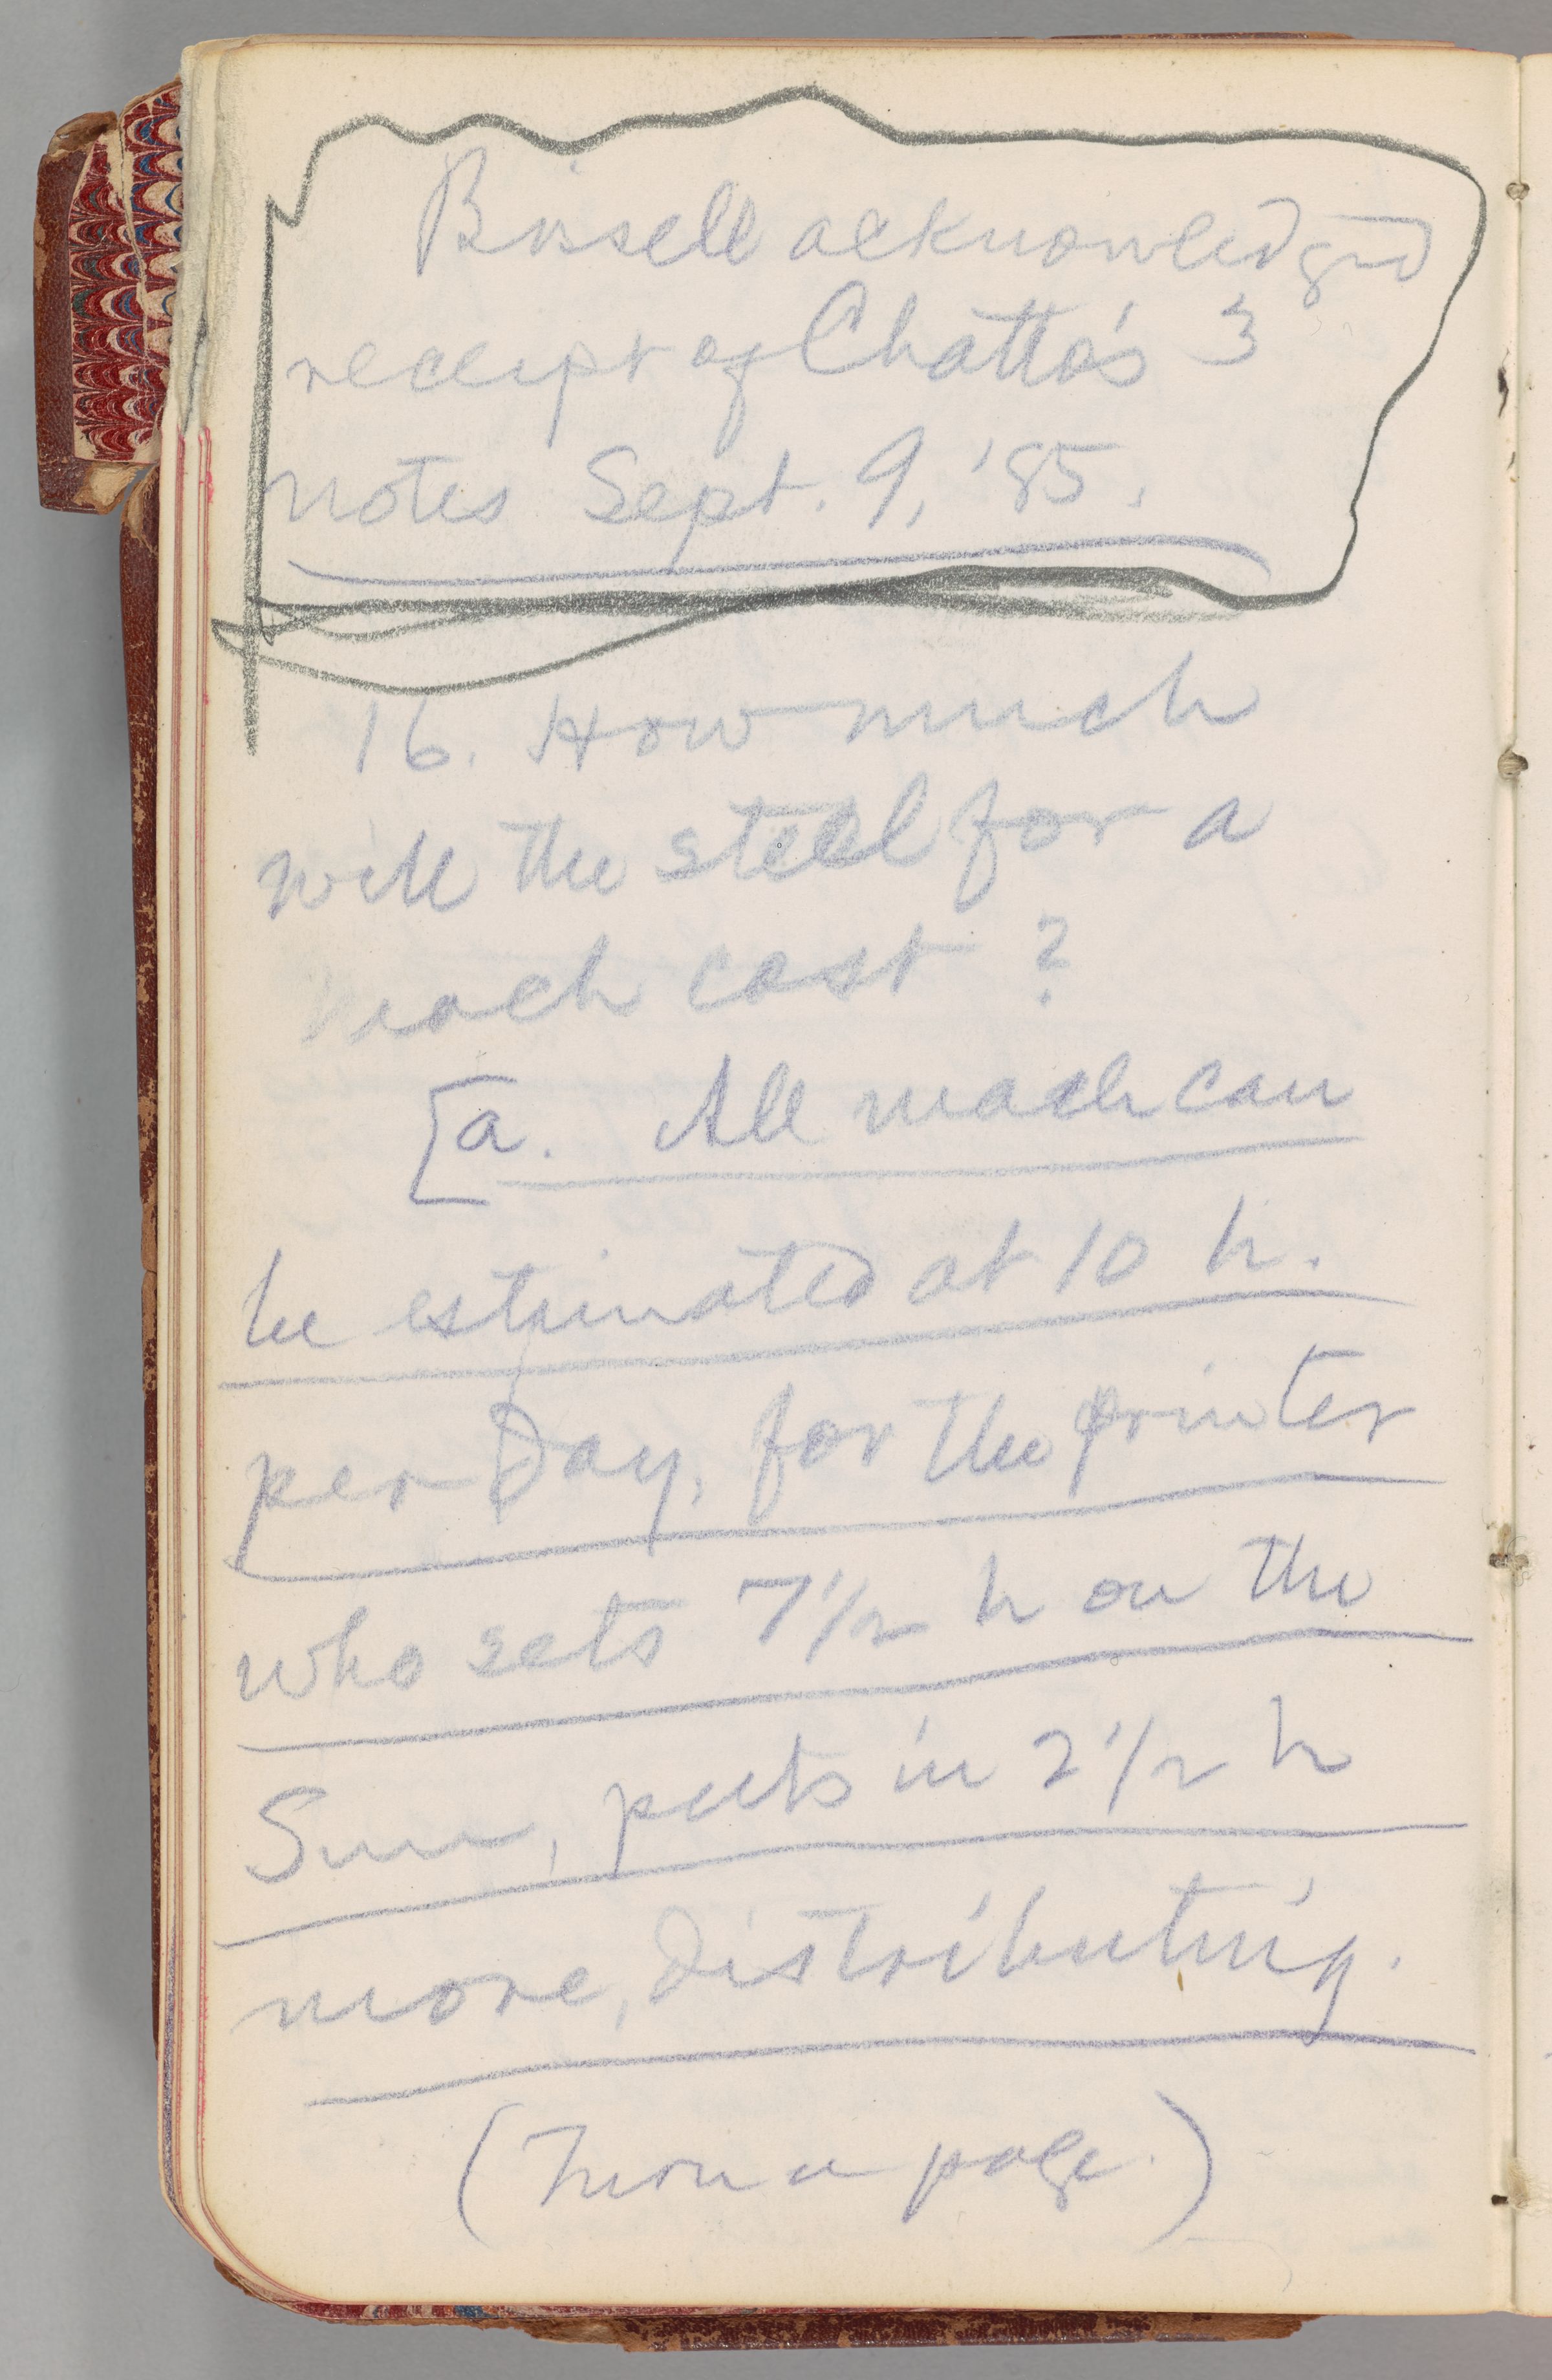 Bissell acknowledged
receipt of Chatto's 3
notes Sept. 9, '85.
16. How much
will the steel for a
mach cost?
[a. All mach can
be estimated at 10 h.
per day, for the printer
who sets 7 1/2 h on the
Sun, puts in 2 1/2 h
more, distributing.
(Turn a page.)